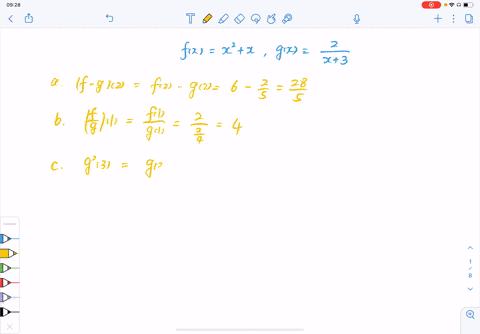 09:28
f(x) = x² + x , g(x) = 2/(x+3)
a. (f-g)(2) = f(2) - g(2) = 6 - 2/5 = 28/5
b. (f/g)(1) = f(1)/g(1) = 2/(2/4) = 4
c. g²(3) = g(
1/8